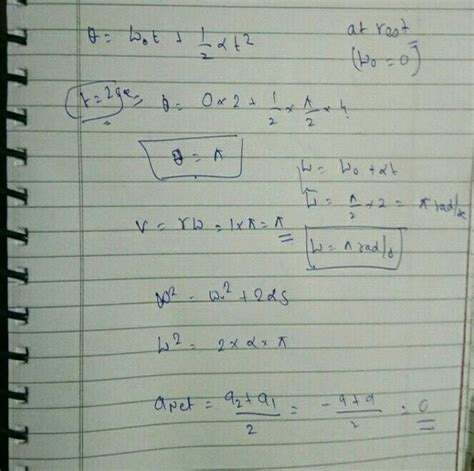 θ = ω₀t + 1/2 αt²
at rest
(ω₀ = 0)
t = 2 sec = θ = 0×2 + 1/2 × π/2 × 4
θ = π
ω = ω₀ + αt
ω = π/2 × 2 = π rad/s
v = rω = 1×π = π
ω = π rad/s
ω² = ω₀² + 2αs
ω² = 2 × α × π
anet = a₂ + a₁ / 2 = -a + a / 2 = 0